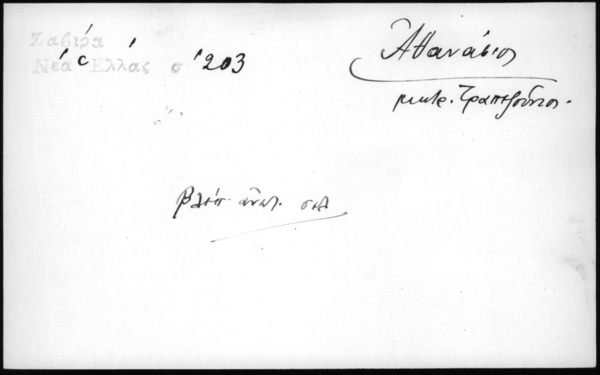 Ζαβιρα
Νέα Ἑλλάς σ 203
Ἀθανάσιος
μητρ. Τραπεζοῦντος.
βλέπ. ἀνωτ. σελ